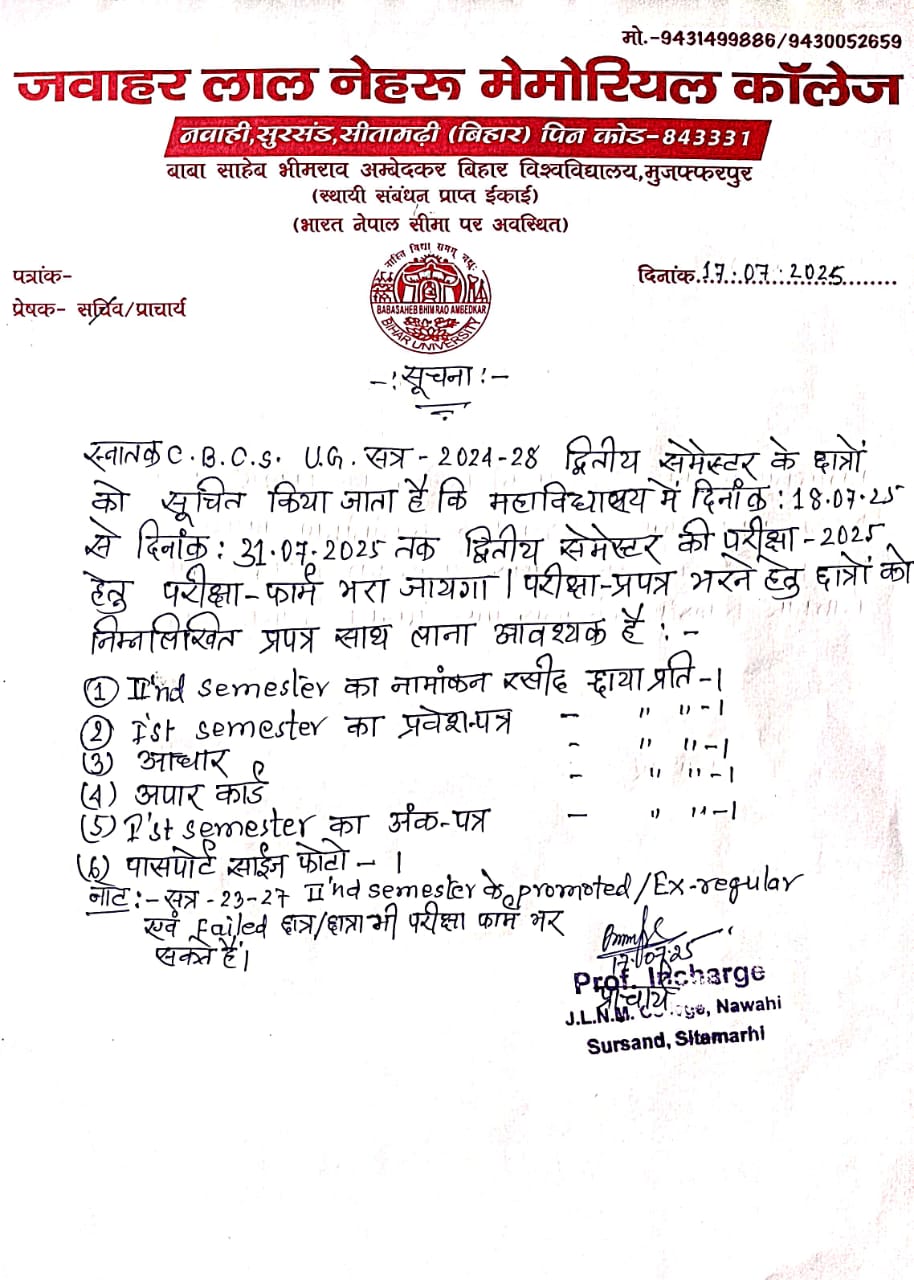 मो.-9431499886/9430052659
जवाहर लाल नेहरू मेमोरियल कॉलेज
नवाही,सुरसंड,सीतामढ़ी (बिहार) पिन कोड-843331
बाबा साहेब भीमराव अम्बेदकर बिहार विश्वविद्यालय,मुजफ्फरपुर
(स्थायी संबंधन प्राप्त ईकाई)
(भारत नेपाल सीमा पर अवस्थित)
पत्रांक-
दिनांक.17.07.2025
प्रेषक- सचिव/प्राचार्य
BABASAHEB BHIM RAO AMBEDKAR
BIHAR UNIVERSITY
-: सूचना :-
स्नातक C.B.C.S. U.G. सत्र - 2024-28 द्वितीय सेमेस्टर के छात्रों
को सूचित किया जाता है कि महाविद्यालय में दिनांक : 18.07.25
से दिनांक : 31.07.2025 तक द्वितीय सेमेस्टर की परीक्षा-2025
हेतु परीक्षा-फार्म भरा जायगा। परीक्षा-प्रपत्र भरने हेतु छात्रों को
निम्नलिखित प्रपत्र साथ लाना आवश्यक है : -
(1) II'nd semester का नामांकन रसीद छाया प्रति -1
(2) I'st semester का प्रवेश-पत्र - " " -1
(3) आधार - " " -1
(4) अपार कार्ड - " " -1
(5) I'st semester का अंक-पत्र - " " -1
(6) पासपोर्ट साईज फोटो - 1
नोट :- सत्र - 23-27 II'nd semester के promoted/Ex-regular
एवं failed छात्र/छात्रा भी परीक्षा फार्म भर
सकते हैं।
17.07.25
Prof. Incharge
प्राचार्य
J.L.N.M. College, Nawahi
Sursand, Sitamarhi